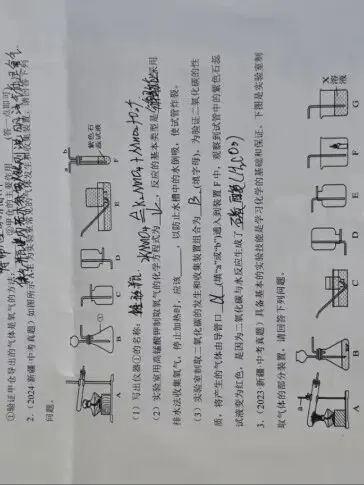 ①验证甲仓导出的气体是氧气的方法
2.(2024新疆中考真题)如图所示A至F为实验室常见的气体发生和收集装置,请回答下列
问题。
a
b
紫色石
蕊试液
①
A
B
C
D
E
F
(1)写出仪器①的名称:锥形瓶
(2)实验室用高锰酸钾制取氧气的化学方程式为 KMnO4 K2MnO4+MnO2+O2↑ ,反应的基本类型是 采用
排水法收集氧气,停止加热时,应该 ,以防止水槽中的水倒吸,使试管炸裂。
(3)实验室制取二氧化碳的发生和收集装置组合为 B (填字母),为验证二氧化碳的性
质,将产生的气体由导管口 a (填“a”或“b”)通入到装置F中,观察到试管中的紫色石蕊
试液变为红色,是因为二氧化碳与水反应生成了 碳酸(H2CO3)
3.(2023新疆中考真题)具备基本的实验技能是学习化学的基础和保证。下图是实验室制
取气体的部分装置,请回答下列问题。
a
X
溶液
A
B
C
D
E
F
G